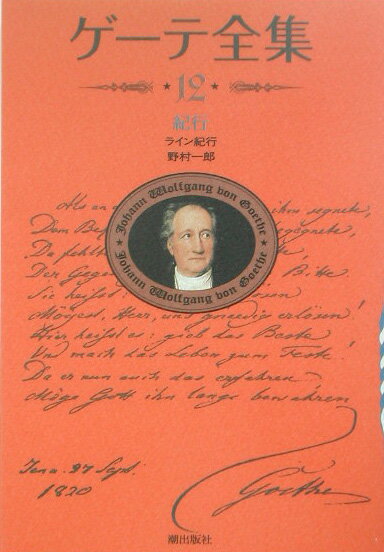 ゲーテ全集
12
紀行
ライン紀行
野村一郎
Johann Wolfgang von Goethe
Johann Wolfgang von Goethe
Als an ihm segnete,
Dem
Da fehlt
Der Bitte
Sie heisst:
Mögest, Herr, uns gnaedig erlösen!
Hier heisst es: gieb das Beste
Und mach das Leben zum Feste!
Da er nun auch das erfahren
Möge Gott ihn lange bewahren
Jena. 27 Sept.
1820
Goethe
潮出版社